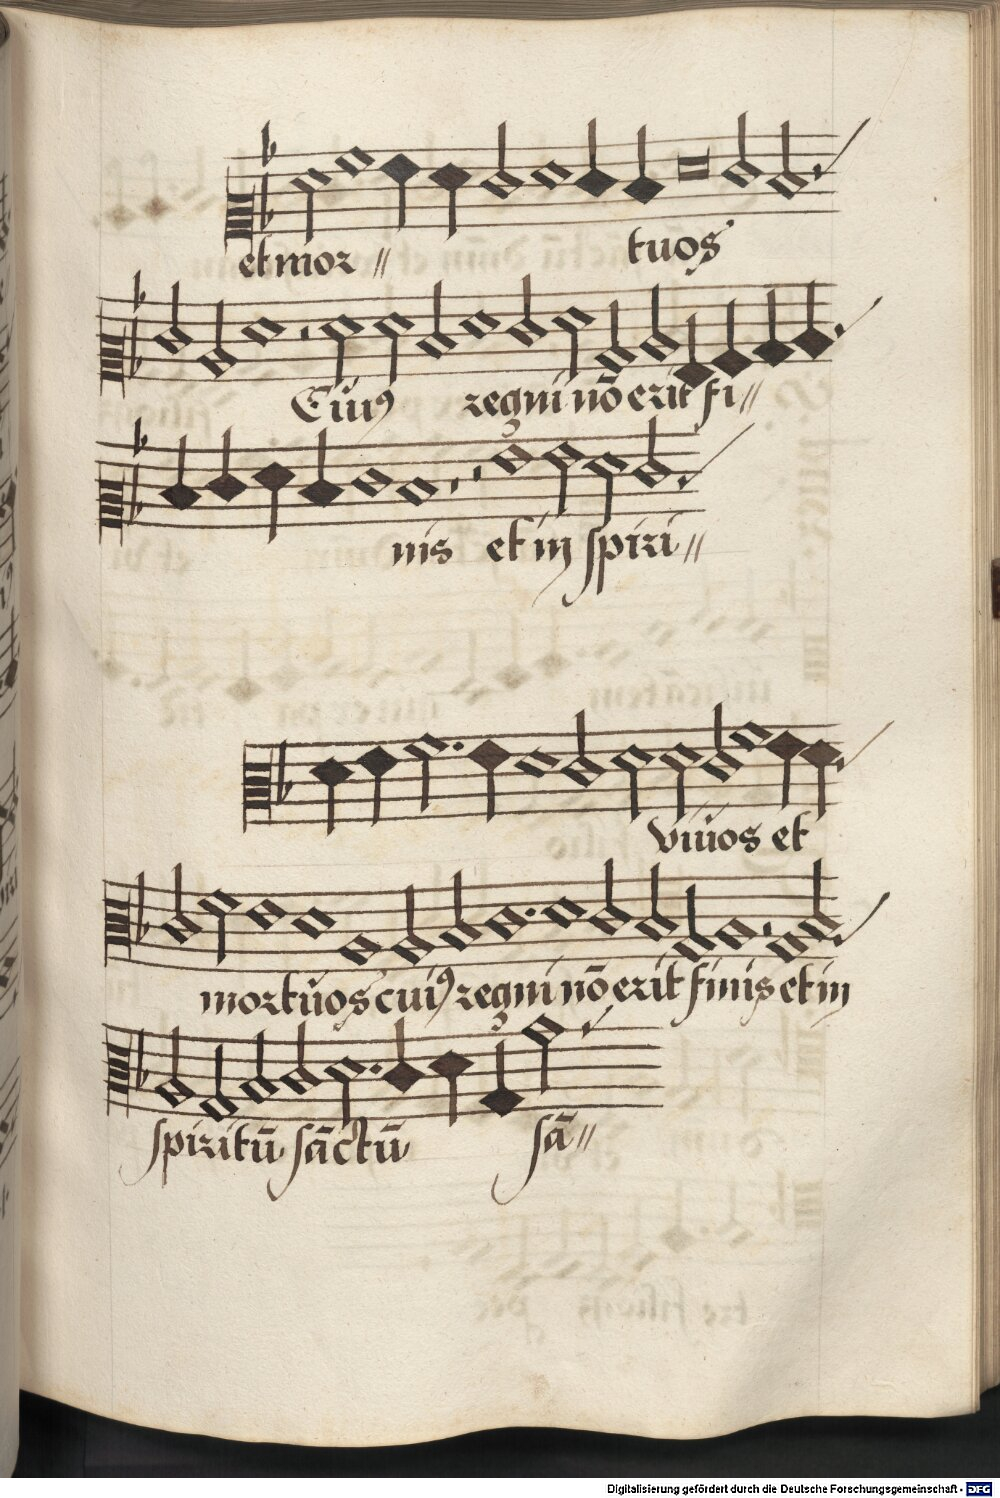 et mor // tuos
Cuiꝰ regni nō erit fi //
nis et in spiri //
viuos et
mortuos cuiꝰ regni nō erit finis et in
spiritū sāctū sā //
Digitalisierung gefördert durch die Deutsche Forschungsgemeinschaft - DFG